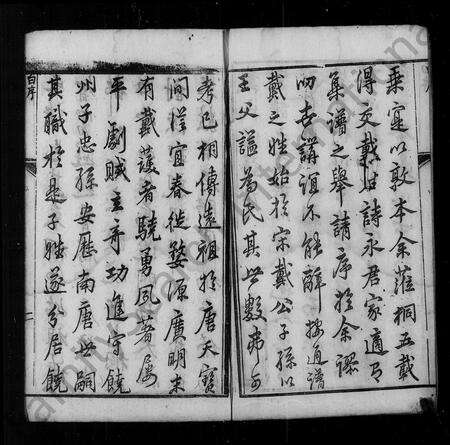 乘寔以敦本余蒞桐五載
得交戴姓詩永君家適有
集譜之舉請序於余認
切世講誼不能辭按通譜
戴之姓始於宋戴公子孫以
王父諡為氏其世數弗可
考已相傳遠祖於唐天寶
間從宜春徙婺源廣明末
有戴護者驍勇風者屢
平劇賊立奇功進守饒
州子忠孫安歷南唐世嗣
其職於是子姓遂分居饒
自序